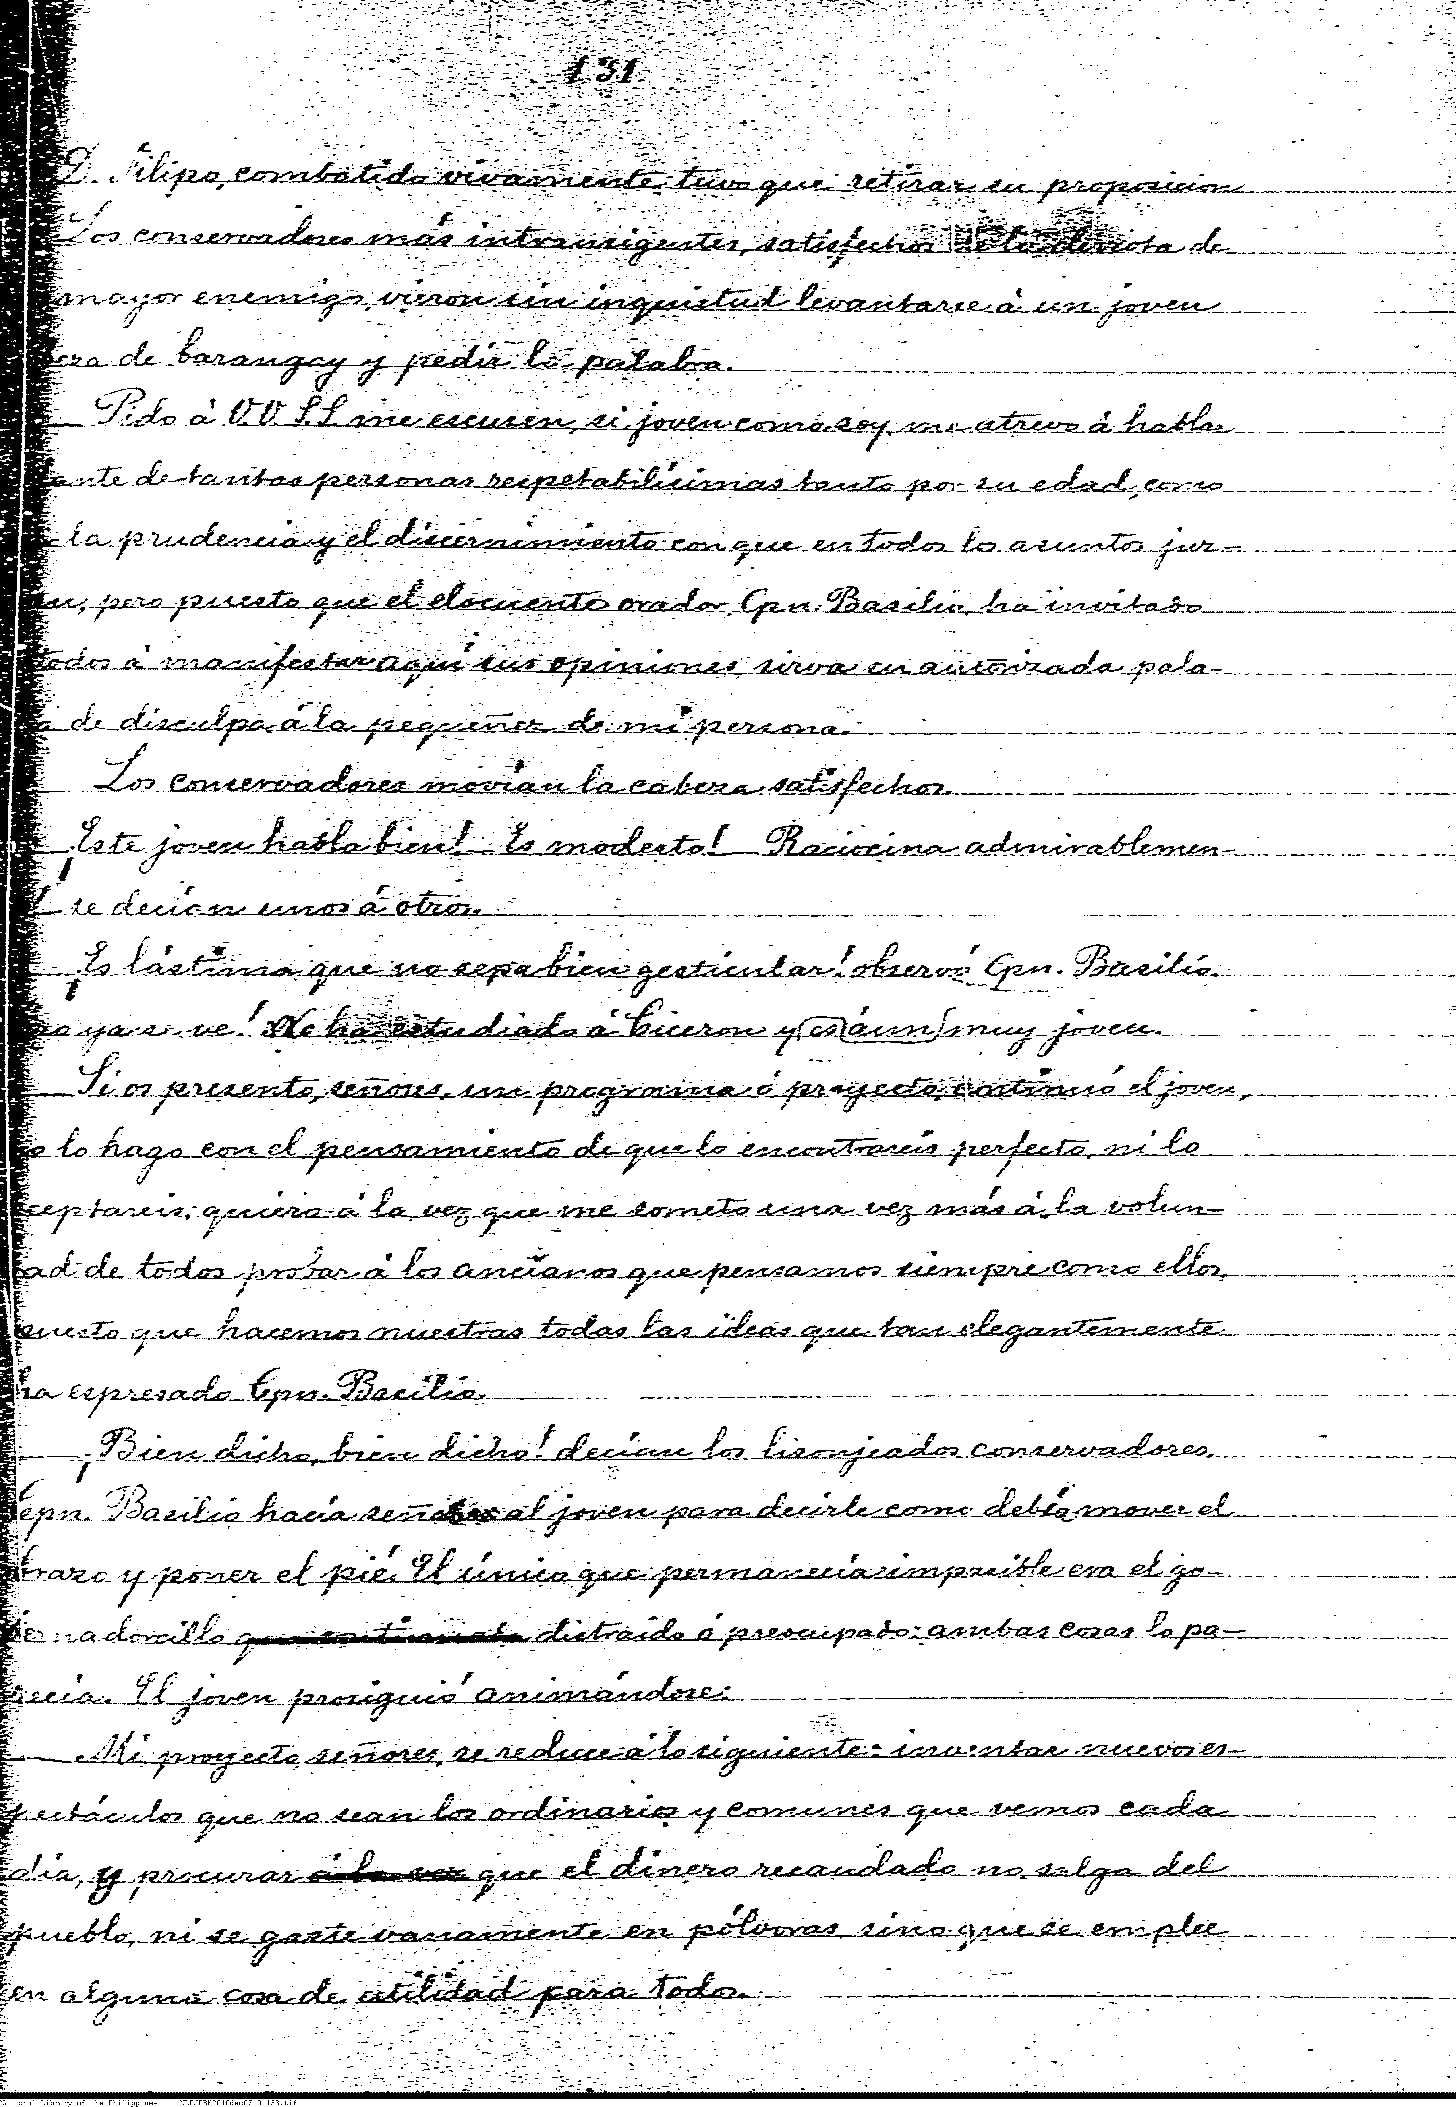 131
D. Filipo, combatido vivamente, tuvo que retirar su proposicion
Los conservadores más intransigentes, satisfechos de la derrota de
mayor enemigo, vieron sin inquietud levantarse á un joven
eza de barangay y pedir la palabra.
— Pido á V.V. S.S. me escusen, si joven como soy, me atrevo á hablar
ante de tantas personas respetabilísimas tanto por su edad, como
la prudencia y el discernimiento con que en todos los asuntos juz-
an; pero puesto que el elocuente orador Cpn. Basilio, ha invitado
todos á manifestar aquí sus opiniones, sirva su autorizada pala-
a de disculpa á la pequeñez de mi persona.
Los conservadores movían la cabeza satisfechos.
— ¡Este joven habla bien! — Es modesto! — Raciocina admirablemen-
! — se decían unos á otros.
— ¡Es lástima que no sepa bien gesticular! observó Cpn. Basilio.
ro ya se ve! No ha estudiado á Ciceron y es áun muy joven.
— Si os presento, señores, un programa ó proyecto, continuó el joven,
o lo hago con el pensamiento de que lo encontrareis perfecto, ni lo
ceptareis; quiero á la vez que me someto una vez más á la volun-
tad de todos probar á los ancianos que pensamos siempre como ellos,
puesto que hacemos nuestras todas las ideas que tan elegantemente
ha espresado Cpn. Basilio.
— ¡Bien dicho, bien dicho! decían los lisonjeados conservadores.
Cpn. Basilio hacía señas al joven para decirle como debía mover el
brazo y poner el pié. El único que permanecía impasible era el go-
bernadorcillo que continuaba distraído ó preocupado: ambas cosas lo pa-
recía. El joven prosiguió animándose:
— Mi proyecto, señores, se reduce á lo siguiente: inventar nuevos es-
pectáculos que no sean los ordinarios y comunes que vemos cada
día, y procurar á la vez que el dinero recaudado no salga del
pueblo, ni se gaste vanamente en pólvoras sino que se emplee
en alguna cosa de utilidad para todos.